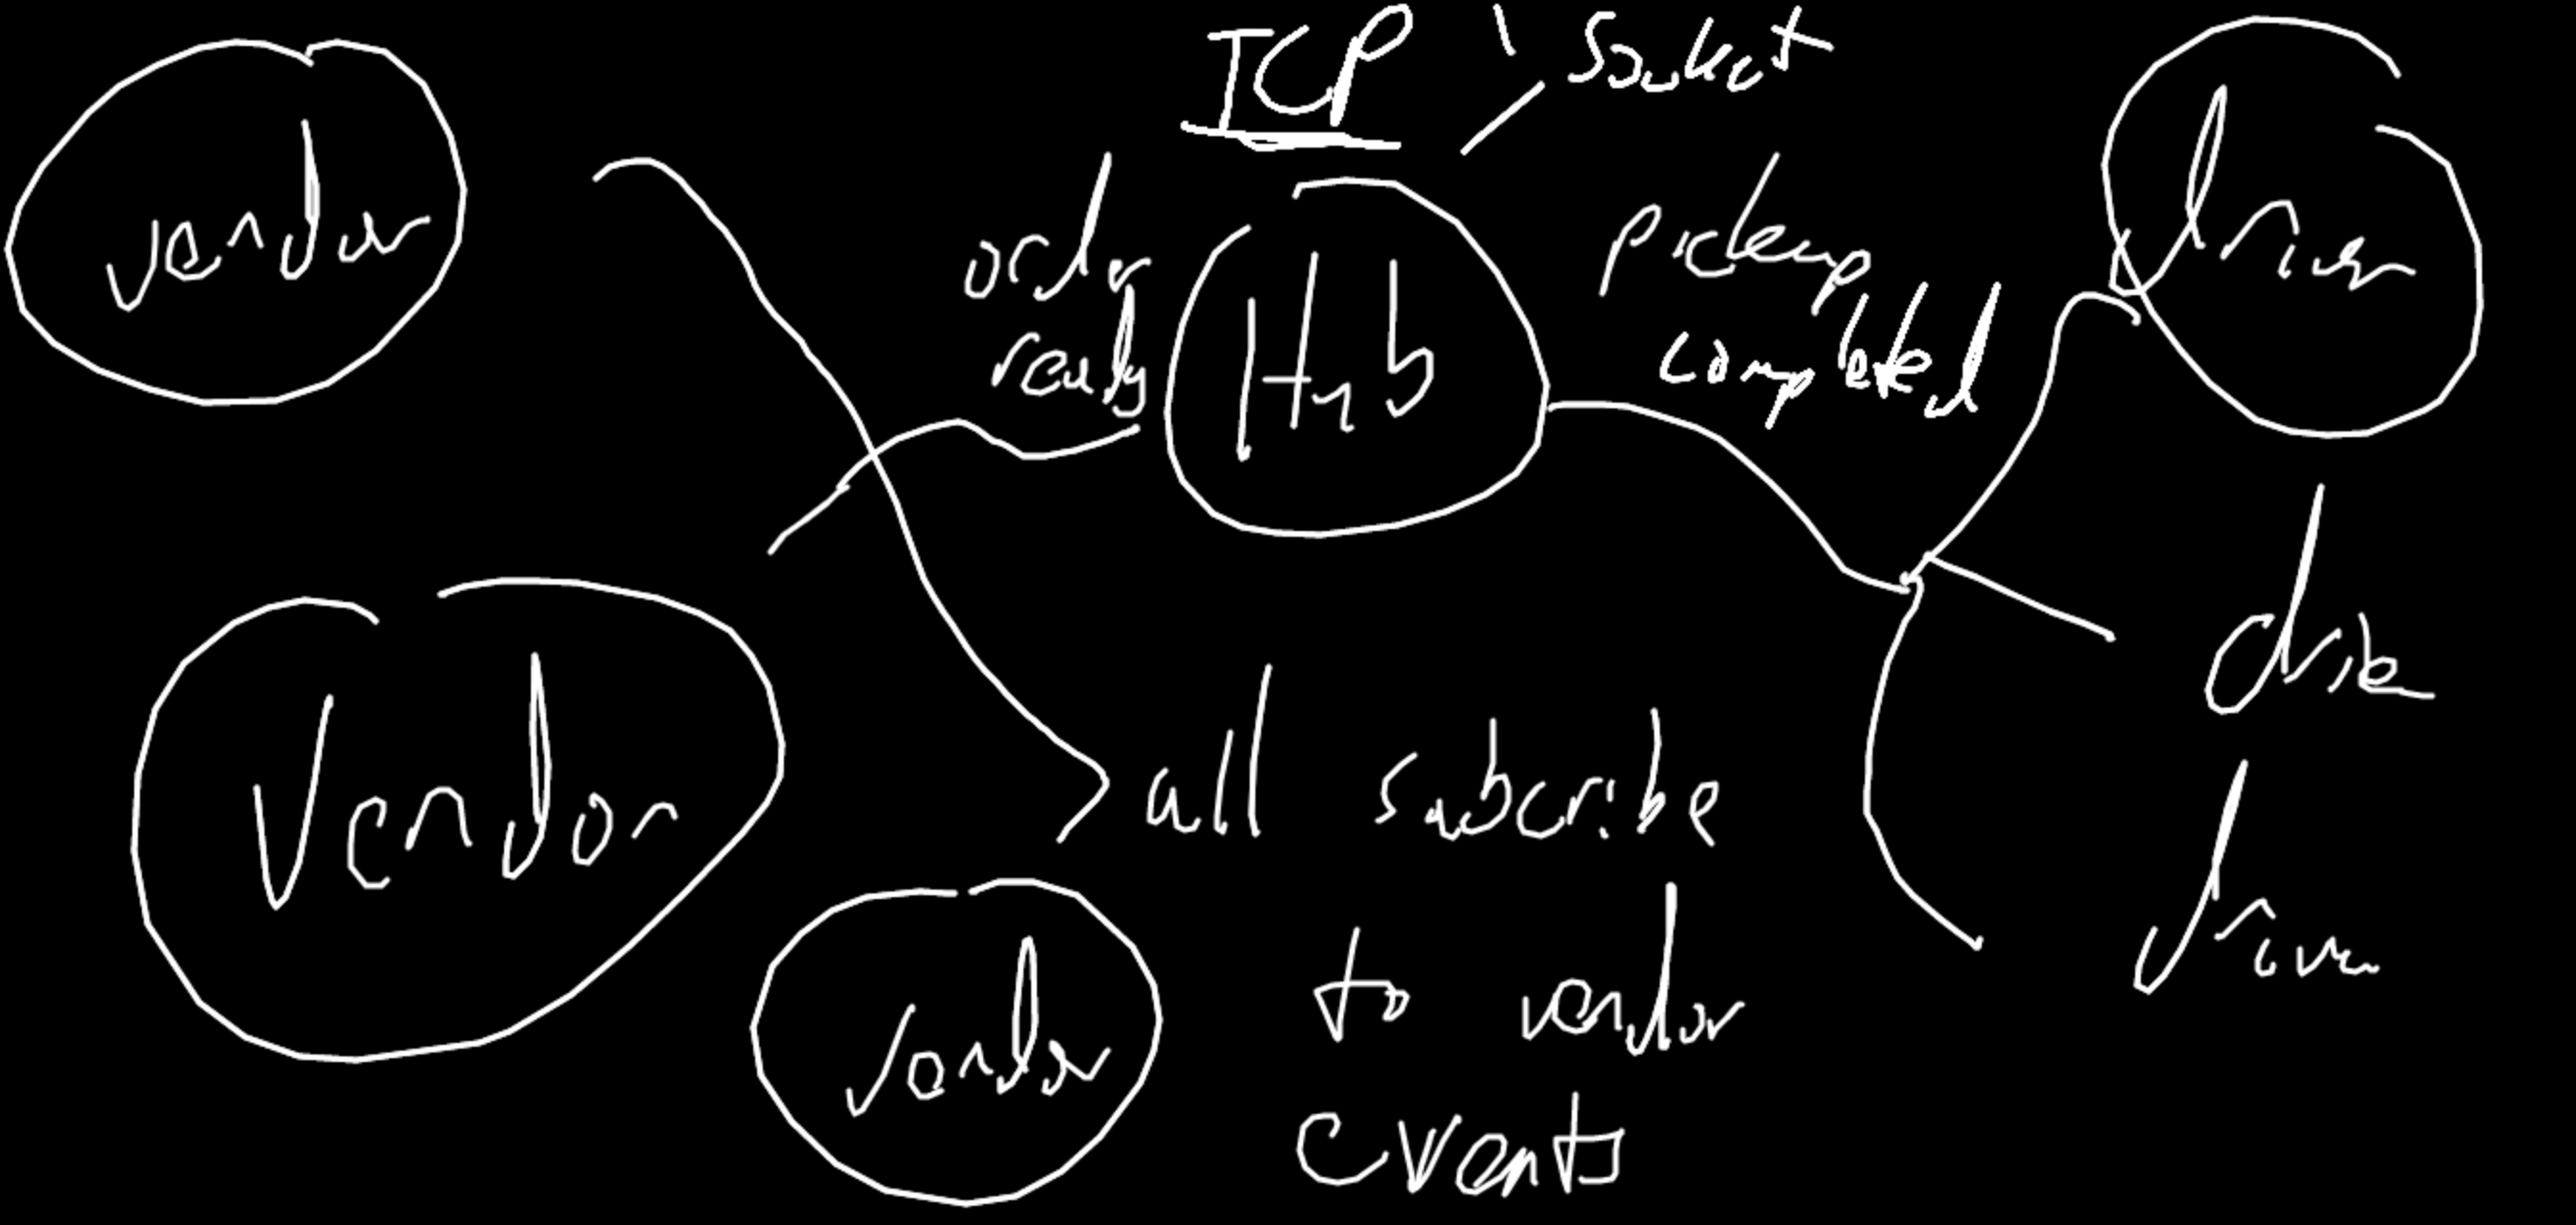 TCP Socket
vendor
order
ready
Hub
pickup
completed
driver
Vendor
driver
vendor
all subscribe
to vendor
events
driver